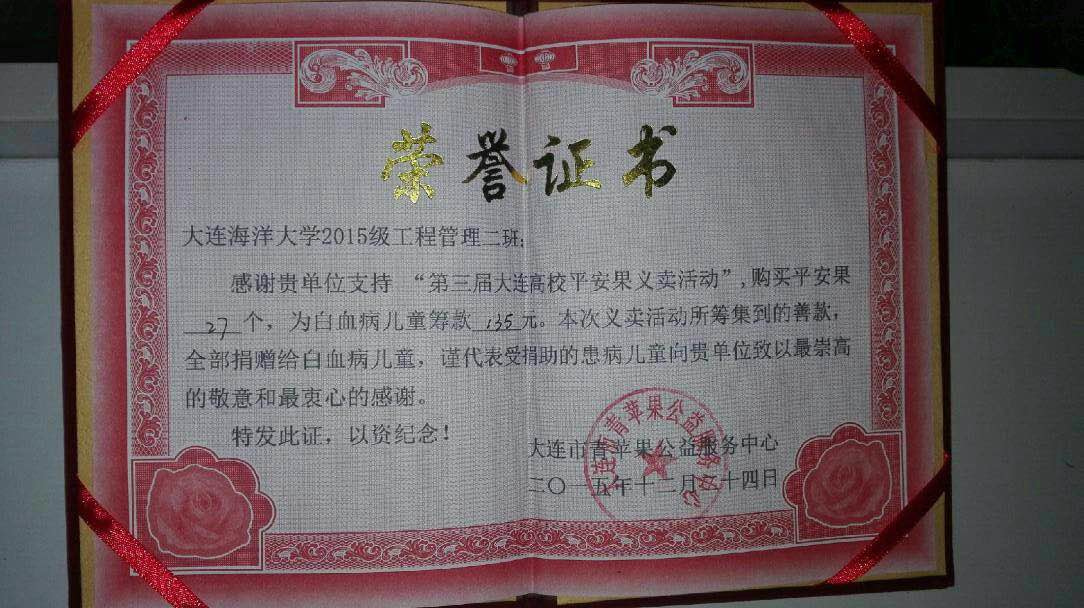 荣誉证书
大连海洋大学2015级工程管理二班:
感谢贵单位支持 “第三届大连高校平安果义卖活动”,购买平安果
27个,为白血病儿童筹款 135元。本次义卖活动所筹集到的善款,
全部捐赠给白血病儿童,谨代表受捐助的患病儿童向贵单位致以最崇高
的敬意和最衷心的感谢。
特发此证,以资纪念!
大连市青苹果公益服务中心
二〇一五年十二月二十四日
大连市青苹果公益服务中心